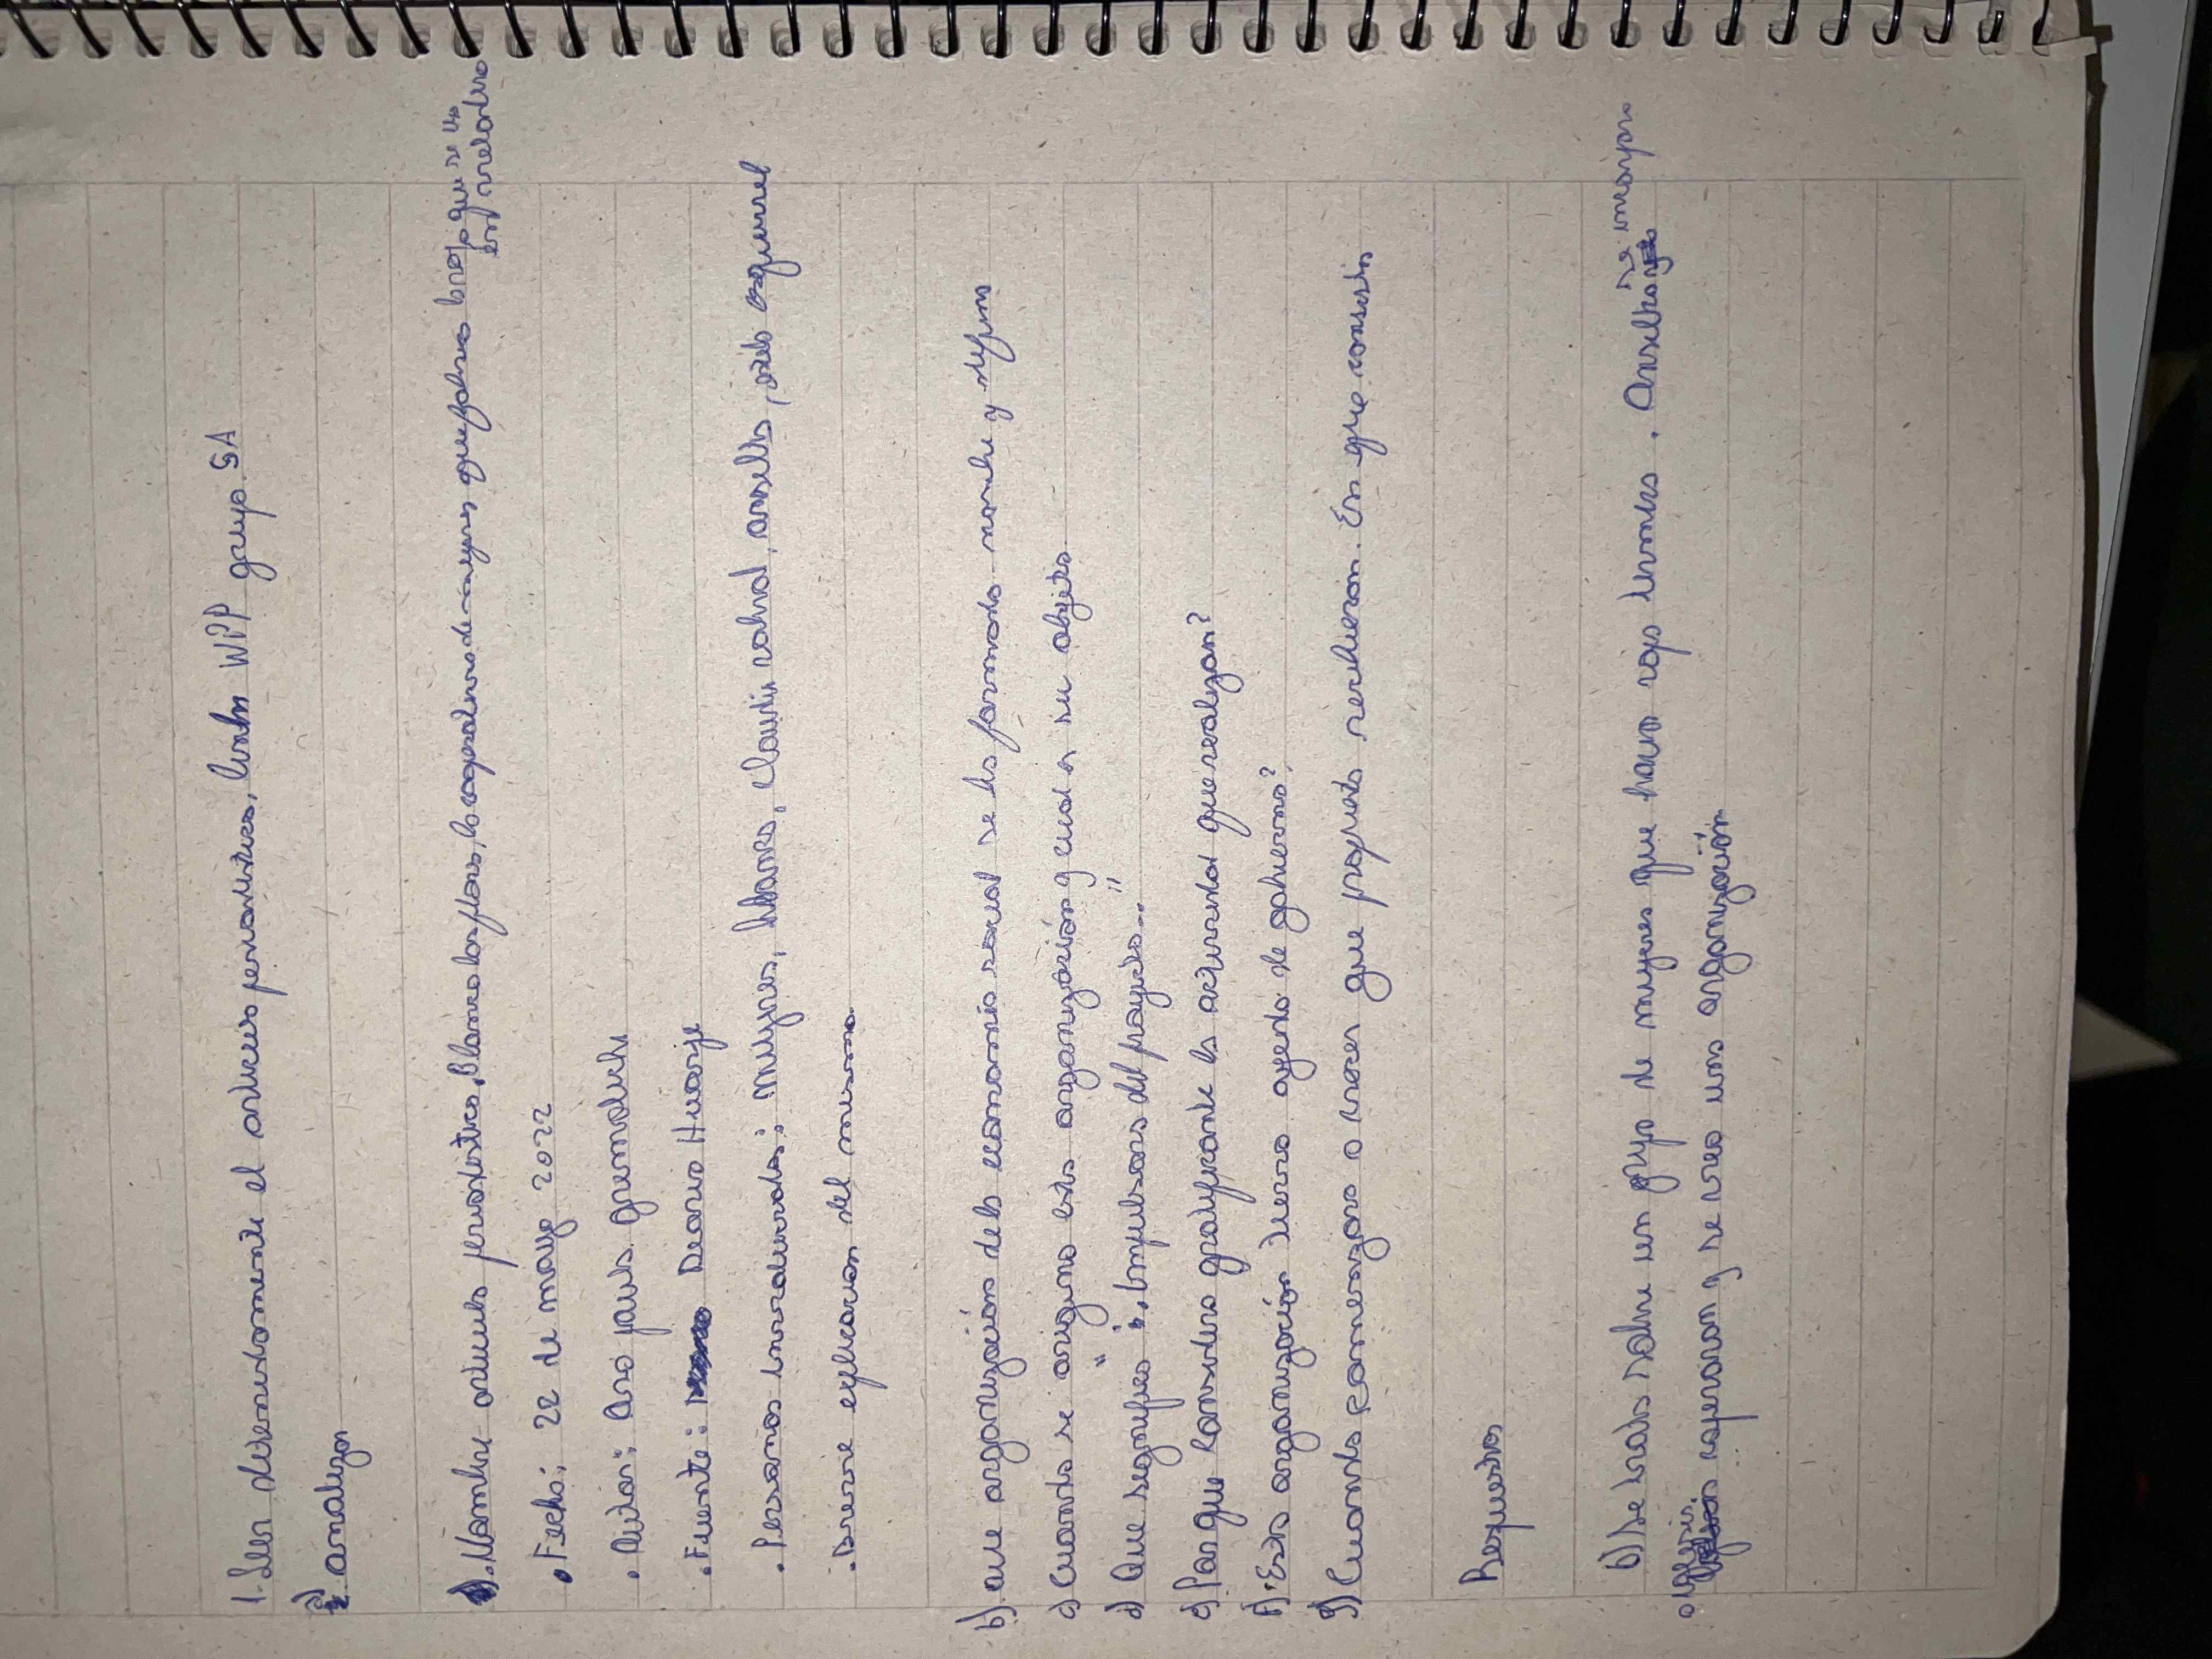 1. Leer detenidamente el articulo periodistico, links WPP grupo. 5A
a) analizar
a). Nombre articulo periodistico, Blanco las flores, la cooperativa de mujeres que fabrica bropa que se Usa en
. Fecha: 22 de mayo 2022
. Autor: Ana paula gremaluchi
. Fuente: Deario Huarje
. Personas involucradas: Mujeres, blanco, claudia cabral, anselta,
. Breve explicacion del mismo
b). que organización dela economia social se ha formado nombre y defina
c) Cuando se origino esta organización y cual es su objeto
d) Que significa "Impulsora del proyecto.."
e) Porque Considera gratificante la actividad que realizan?
f) Esta organización tierra ayerda de gobierno?
g) Cuando comenzaro a crecer que proyecto recibieron. En que consistia
Respuestas
b) Se trata sobre un grupo de mujeres que hacen ropa . Anselta se
cooperaron y se creo una organización